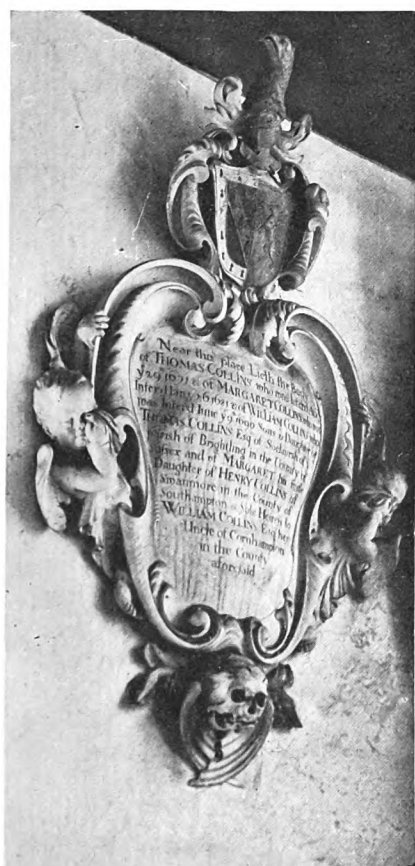 Near this place Lieth the Body
of THOMAS COLLINS who was
yͤ 29 1671 & of MARGARET COLLINS who was
Interd & of WILLIAM COLLINS who
was Interd June yͤ 9 1690 Sons & Daughter of
THOMAS COLLINS Esqͬ of in yͤ
Parish of Brightling in the County of
ussex and of MARGARET his Wife
Daughter of HENRY COLLINS of
in the County of
Southampton & Sole Heires to
WILLIAM COLLINS Esqͬ her
Uncle of Cornhampton
in the County
aforesaid